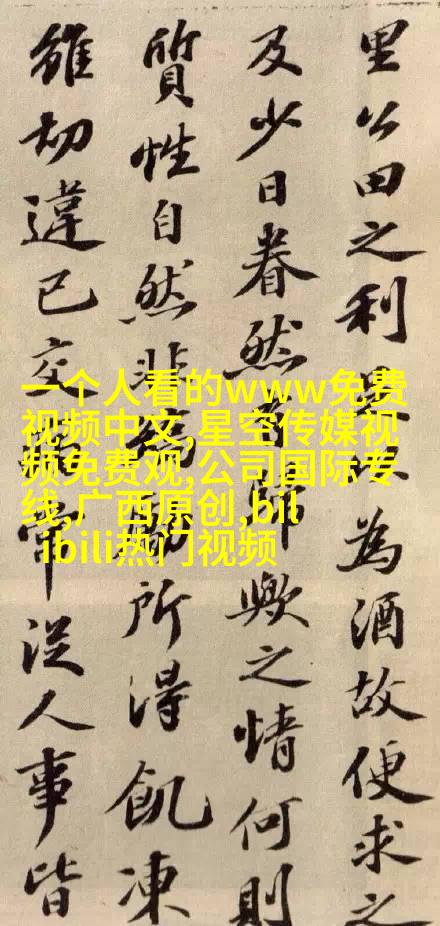 里公田之利為酒故便求之
及少日眷然有歸歟之情何則
質性自然非所得飢凍
雖切違己交從人事皆
一个人看的www免费
视频中文,星空传媒视
频免费观,公司国际专
线,广西原创,bil
ibili热门视频